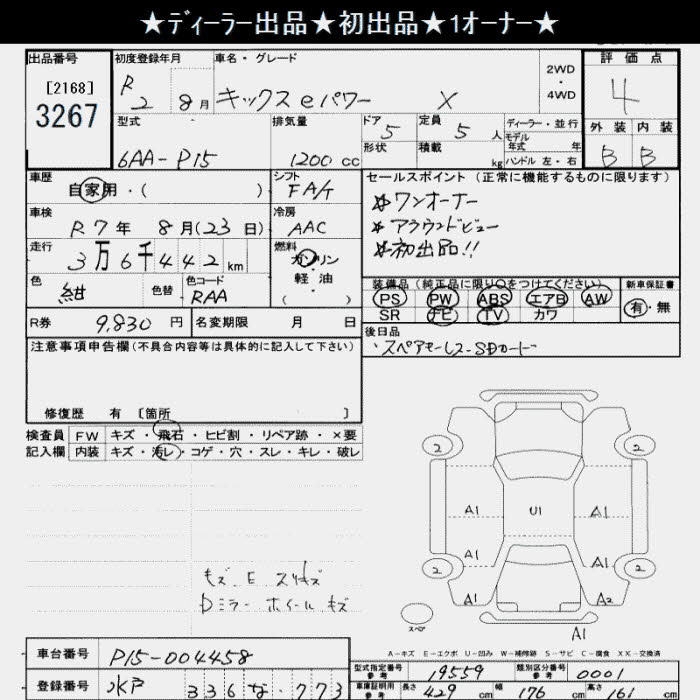 ★ディーラー出品★初出品★1オーナー★
出品番号
[2168]
3267
初度登録年月
R 2 8月
車名・グレード
キックス eパワー X
2WD
・
4WD
評価点
4
型式
6AA-P15
排気量
1200 cc
ドア
5
形状
定員
5 人
積載
kg
ディーラー・並行
モデル
年式 年
ハンドル 左・右
外装 内装
B B
車歴
自家用・( )
シフト
FA/T
セールスポイント(正常に機能するものに限ります)
☆ワンオーナー
☆アラウンドビュー
☆初出品!!
車検
R 7年 8月(23日)
冷房
AAC
走行
3万6千442km
燃料
ガソリン
・
軽油
( )
色
紺
色替
色コード
RAA
装備品(純正品に限り○をつけてください)
PS PW ABS エアB AW
SR ナビ TV カワ
新車保証書
有・無
R券 9,830円
名変期限 月 日
後日品
・スペアキーレス・SDカード
注意事項申告欄(不具合内容等は具体的に記入して下さい)
修復歴 有 〔箇所 〕
検査員
記入欄
FW キズ・飛石・ヒビ割・リペア跡・×要
内装 キズ・汚レ・コゲ・穴・スレ・キレ・破レ
2 2
A1 U1 A1
A1 A1
2 2
A1 A2
スペア
A1
キズ E スリキズ
Dミラー ホイール キズ
A-キズ E-エクボ U-凹み W-補修跡 S-サビ C-腐食 XX-交換済
車台番号 P15-004458
型式指定番号
参考
19559
類別区分番号
参考
0001
登録番号 水戸 336 な 773
車庫証明用
参考
長さ 429 cm 幅 176 cm 高さ 161 cm